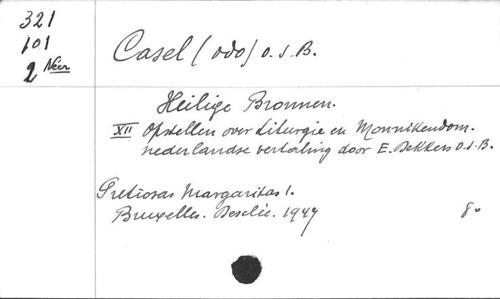 321
101
2 Néer
Casel (Odo) O.S.B.
Heilige Bronnen.
XII Opstellen over Liturgie en Monnikendom.
nederlandse vertaling door E. Dekkers O.S.B.
Pretiosas Margaritas 1.
Bruxelles. Desclée. 1947
8°